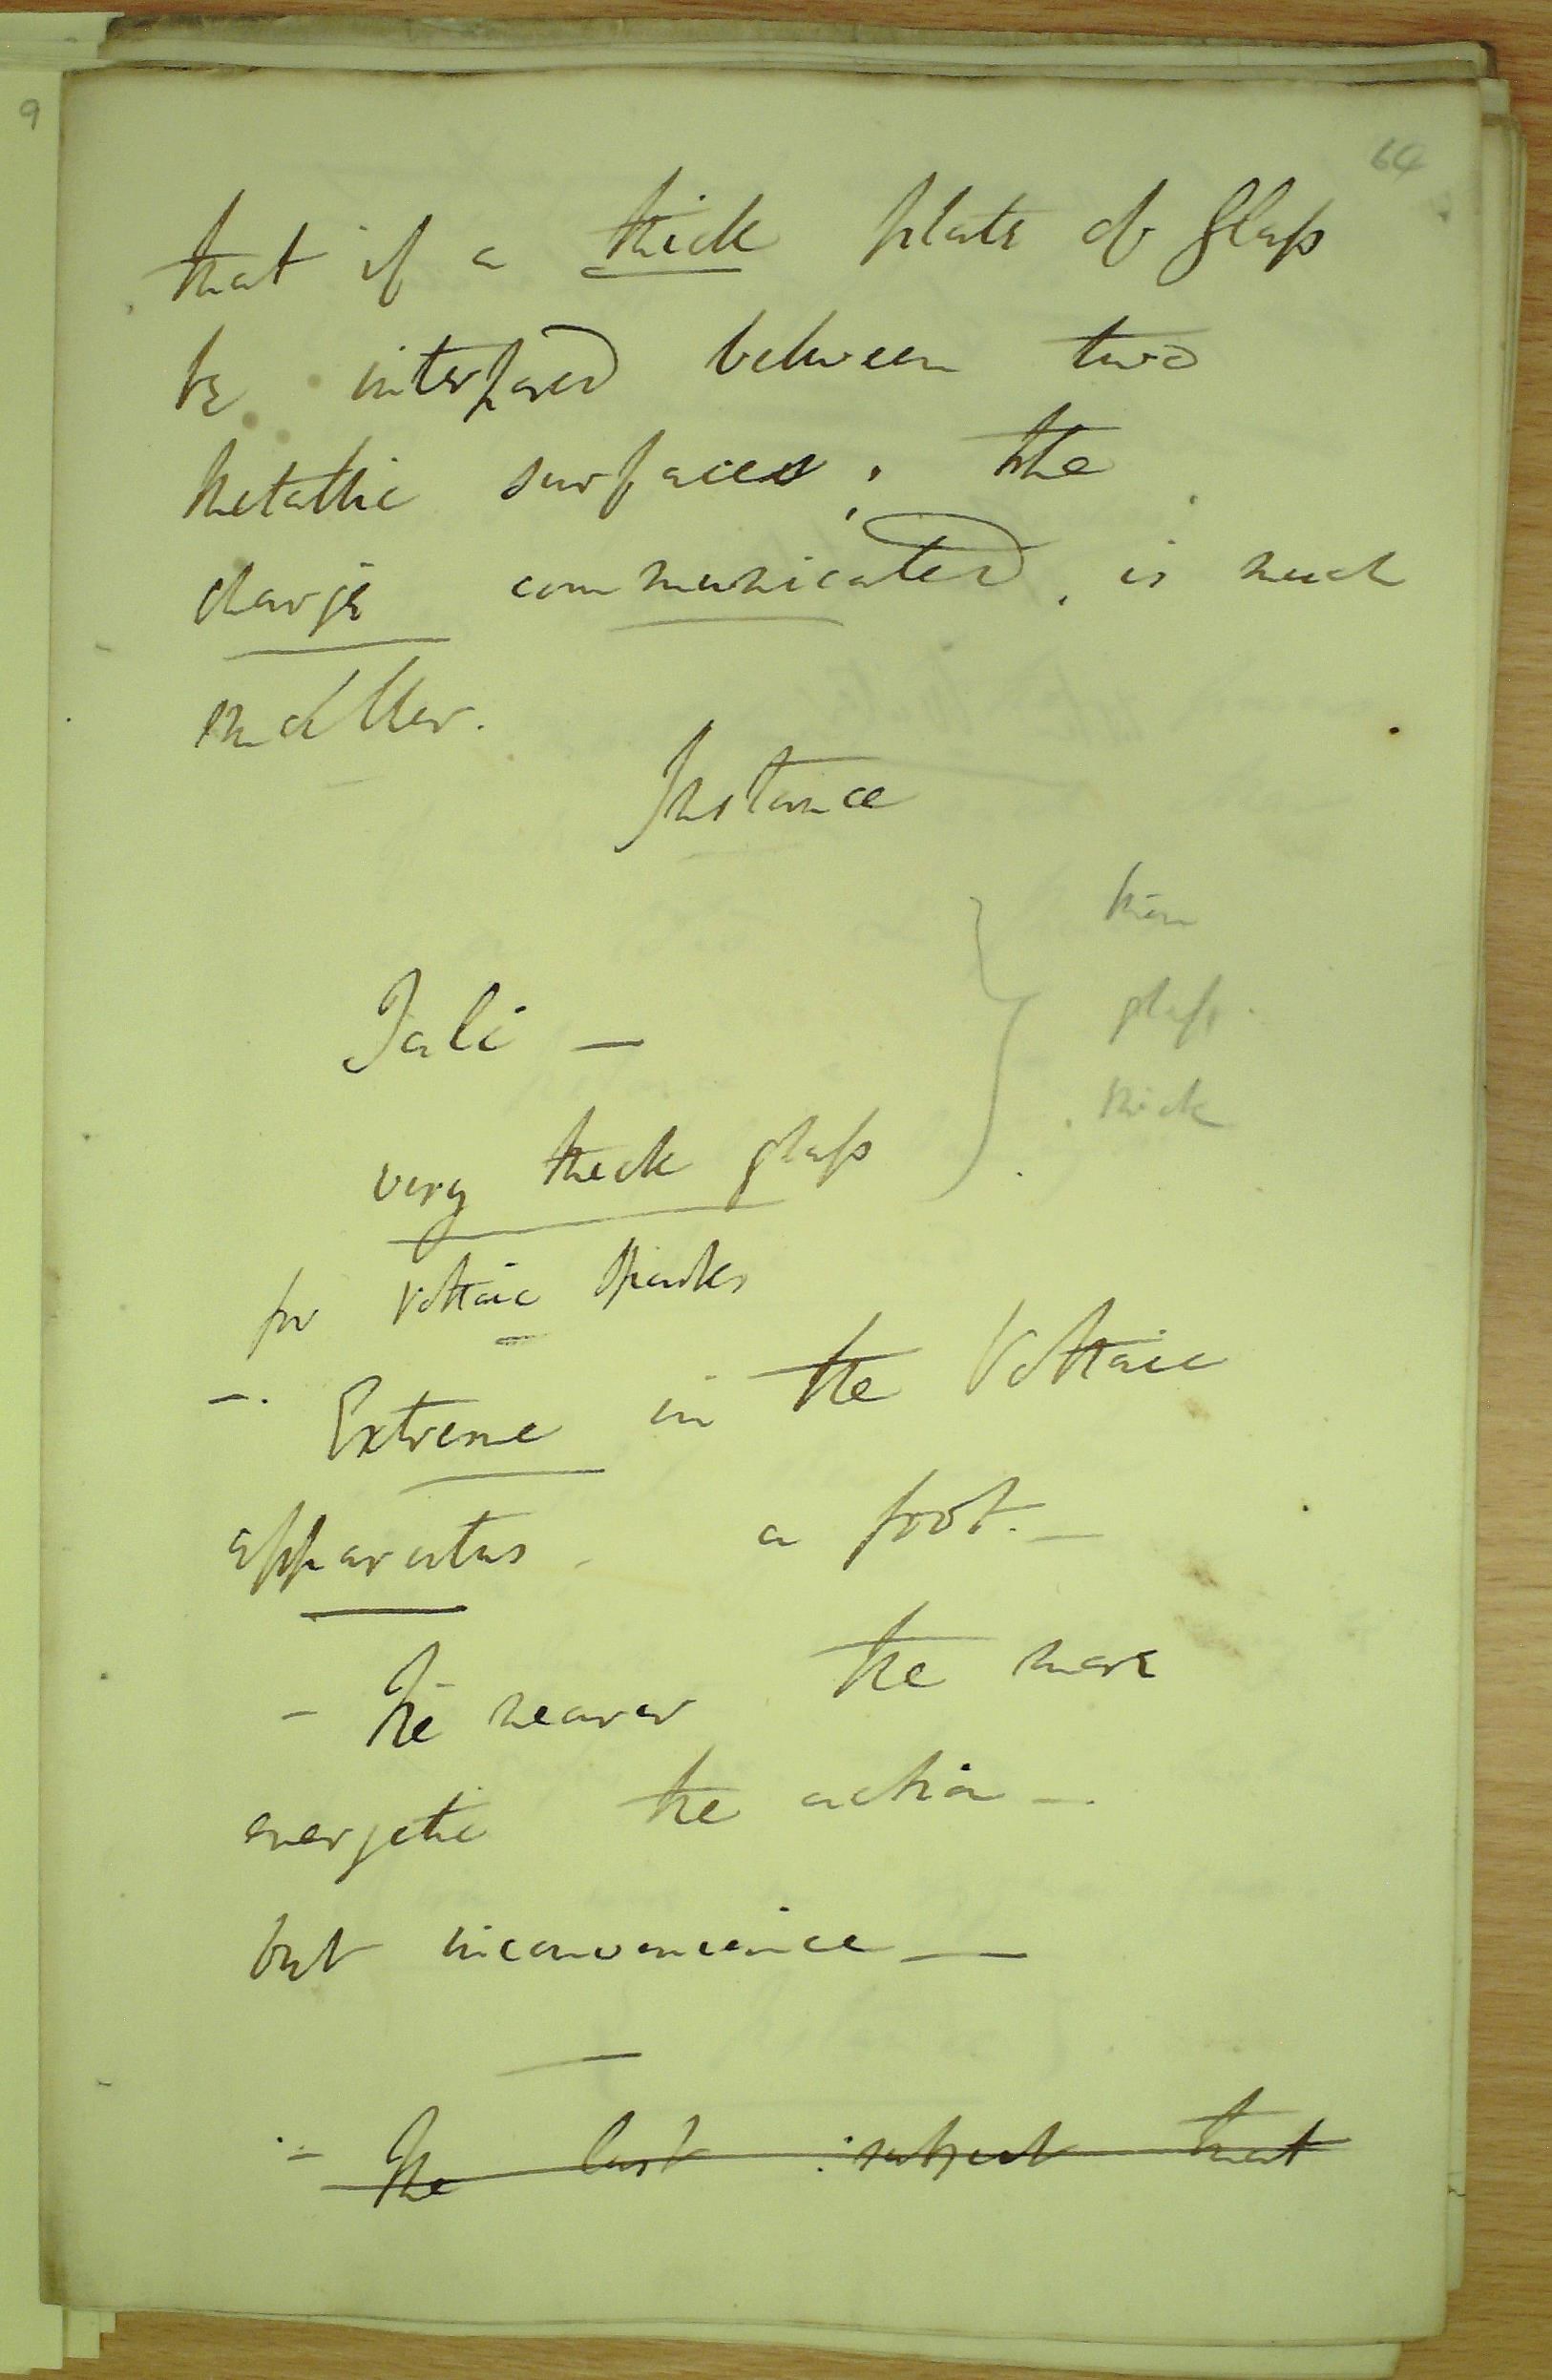 64
that if a thick plate of Glaſs
be interposed between two
Metallic surfaces, the
charge communicated, is much
smaller.
Instance
thin
glaſs.
thick
very thick glaſs
for Voltaic Sparks
Extreme in the Voltaic
apparatus a foot. —
— The nearer the more
energetic the action —.
but inconvenience —
— The last subject that
9